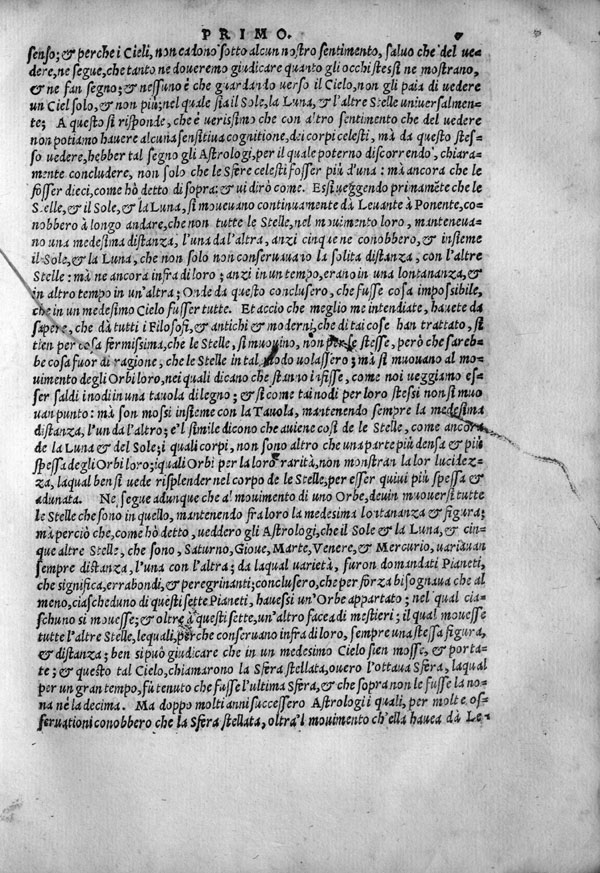 PRIMO.
senso; & perche i Cieli, non cadono sotto alcun nostro sentimento, saluo che del ue-
dere, ne segue, che tanto ne doueremo giudicare quanto gli occhi stessi ne mostrano,
& ne fan segno; & nessuno è che guardando uerso il Cielo, non gli paia di uedere
un Ciel solo, & non piu; nel quale sia il Sole, la Luna, & l'altre Stelle uniuersalmen-
te; A questo si risponde, che è uerissimo che con altro sentimento che del uedere
non potiamo hauere alcuna sensitiua cognitione, dei corpi celesti, mà da questo stes-
so uedere, hebber tal segno gli Astrologi, per il quale poterno discorrendo, chiara-
mente concludere, non solo che le Sfere celesti fosser più d'una: mà ancora che le
fosser dieci, come hò detto di sopra: & ui dirò come. Essi ueggendo primamẽte che le
Stelle, & il Sole, & la Luna, si moueuano continuamente dà Leuante à Ponente, co-
nobbero à longo andare, che non tutte le Stelle, nel mouimento loro, manteneua-
no una medesima distanza, l'una dal'altra, anzi cinque ne conobbero, & insieme
il Sole, & la Luna, che non solo non conseruauano la solita distanza, con l'altre
Stelle: mà ne ancora infra di loro; anzi in un tempo, erano in una lontananza, &
in altro tempo in un'altra; Onde da questo conclusero, che fusse cosa impossibile,
che in un medesimo Cielo fusser tutte. Et accio che meglio me intendiate, hauete da
sapere, che dà tutti i Filosofi, & antichi & moderni, che di tai cose han trattato, si
tien per cosa fermissima, che le Stelle, si muouino, non per le stesse, però che sareb-
be cosa fuor di ragione, che le Stelle in tal modo uolassero; mà si muouano al mo-
uimento degli Orbi loro, nei quali dicano che stanno infisse, come noi ueggiamo es-
ser saldi inodi in una tauola di legno; & si come tai nodi per loro stessi non si muo
uan punto: ma son mossi insieme con la Tauola, mantenendo sempre la medesima
distanza, l'un da l'altro; e'l simile dicono che auiene cosi de le Stelle, come ancora
de la Luna & del Sole; i quali corpi, non sono altro che una parte più densa & più
spessa degli Orbi loro; i quali Orbi per la loro rarità, non monstran la lor lucidez-
za, laqual ben si uede risplender nel corpo de le Stelle, per esser quiui più spessa &
adunata. Ne segue adunque che al mouimento di uno Orbe, deuin muouersi tutte
le Stelle che sono in quello, mantenendo infra loro la medesima lontananza & figura;
mà perciò che, come hò detto, ueddero gli Astrologi, che il Sole & la Luna, & cin-
que altre Stelle, che sono, Saturno, Gioue, Marte, Venere, & Mercurio, uariauan
sempre distanza, l'una con l'altra; da laqual uarietà, furon domandati Pianeti,
che significa, errabondi, & peregrinanti; conclusero, che per forza bisognaua che al
meno, ciascheduno di questi sette Pianeti, hauessi un'Orbe appartato; nel qual cia-
schuno si mouesse; & oltre à questi sette, un'altro facea di mestieri; il qual mouesse
tutte l'altre Stelle, lequali, perche conseruano infra di loro, sempre una stessa figura,
& distanza; ben si può giudicare che in un medesimo Cielo sien mosse, & porta-
te; & questo tal Cielo, chiamarono la Sfera stellata, ouero l'ottaua Sfera, laqual
per un gran tempo, fù tenuto che fusse l'ultima Sfera, & che sopra non le fusse la no-
na nè la decima. Ma doppo molti anni successero Astrologi i quali, per molte os-
seruationi conobbero che la Sfera stellata, oltra'l mouimento ch'ella hauea dà Le-